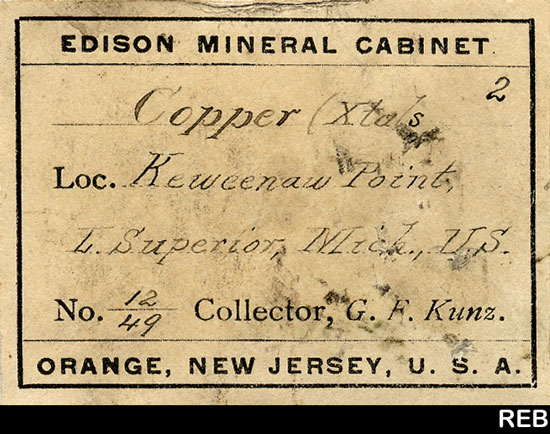 EDISON MINERAL CABINET
2
Copper (Xtals
Loc. Keweenaw Point,
L. Superior, Mich., U.S.
No. 12/49 Collector, G. F. Kunz.
ORANGE, NEW JERSEY, U. S. A.
REB